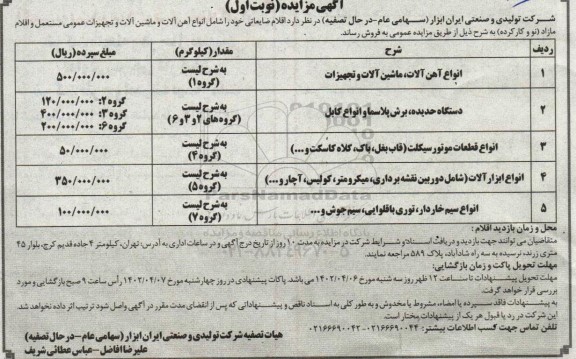 آگهی مزایده (نوبت اول)
شرکت تولیدی و صنعتی ایران ابزار (سهامی عام - در حال تصفیه) در نظر دارد اقلام ضایعاتی خود را شامل انواع آهن آلات و ماشین آلات و تجهیزات عمومی مستعمل و اقلام
مازاد (نو و کارکرده) به شرح ذیل از طریق مزایده عمومی به فروش رساند.
ردیف شرح مقدار (کیلوگرم) مبلغ سپرده (ریال)
۱ انواع آهن آلات، ماشین آلات و تجهیزات به شرح لیست (گروه ۱) ۵۰۰/۰۰۰/۰۰۰
۲ دستگاه حدیده، برش پلاسما و انواع کابل به شرح لیست (گروه های ۲ و ۳ و ۶) گروه ۲: ۱۲۰/۰۰۰/۰۰۰
گروه ۳: ۴۰۰/۰۰۰/۰۰۰
گروه ۶: ۲۰۰/۰۰۰/۰۰۰
۳ انواع قطعات موتور سیکلت (قاب بغل، باک، کلاه کاسکت و...) به شرح لیست (گروه ۴) ۵۰/۰۰۰/۰۰۰
۴ انواع ابزار آلات (شامل دوربین نقشه برداری، میکرومتر، کولیس، آچار و...) به شرح لیست (گروه ۵) ۳۵۰/۰۰۰/۰۰۰
۵ انواع سیم خاردار، توری باقلوایی، سیم جوش و... به شرح لیست (گروه ۷) ۱۰۰/۰۰۰/۰۰۰
محل و زمان بازدید اقلام:
متقاضیان می توانند جهت بازدید و دریافت اسناد و شرایط شرکت در مزایده به مدت ۱۰ روز از تاریخ درج آگهی و در ساعات اداری به آدرس: تهران، کیلومتر ۴ جاده قدیم کرج، بلوار ۴۵
متری زرند، نرسیده به سه راه شادآباد، پلاک ۵۸۹ مراجعه نمایند.
مهلت تحویل پاکت و زمان بازگشایی:
مهلت تحویل پیشنهادات تا ساعت ۱۲ ظهر روز سه شنبه مورخ ۱۴۰۲/۰۴/۰۶ می باشد. پاکات پیشنهادی در روز چهارشنبه مورخ ۱۴۰۲/۰۴/۰۷ رأس ساعت ۹ صبح بازگشایی و مورد
بررسی قرار خواهد گرفت.
به پیشنهادات فاقد سپرده یا امضاء، مشروط یا مخدوش و به طور کلی به اسناد ناقص و پیشنهاداتی که پس از انقضای مدت مقرر در آگهی واصل شود ترتیب اثر داده نخواهد شد.
این شرکت در رد یا قبول هر یک از پیشنهادات مختار است.
تلفن تماس جهت کسب اطلاعات بیشتر: ۰۲۱۶۶۶۹۰۰۴۴ - ۰۲۱۶۶۶۹۰۰۴۲
هیات تصفیه شرکت تولیدی و صنعتی ایران ابزار (سهامی عام - در حال تصفیه)
علیرضا افاضل - عباس عطائی شریف
ParsNamadData